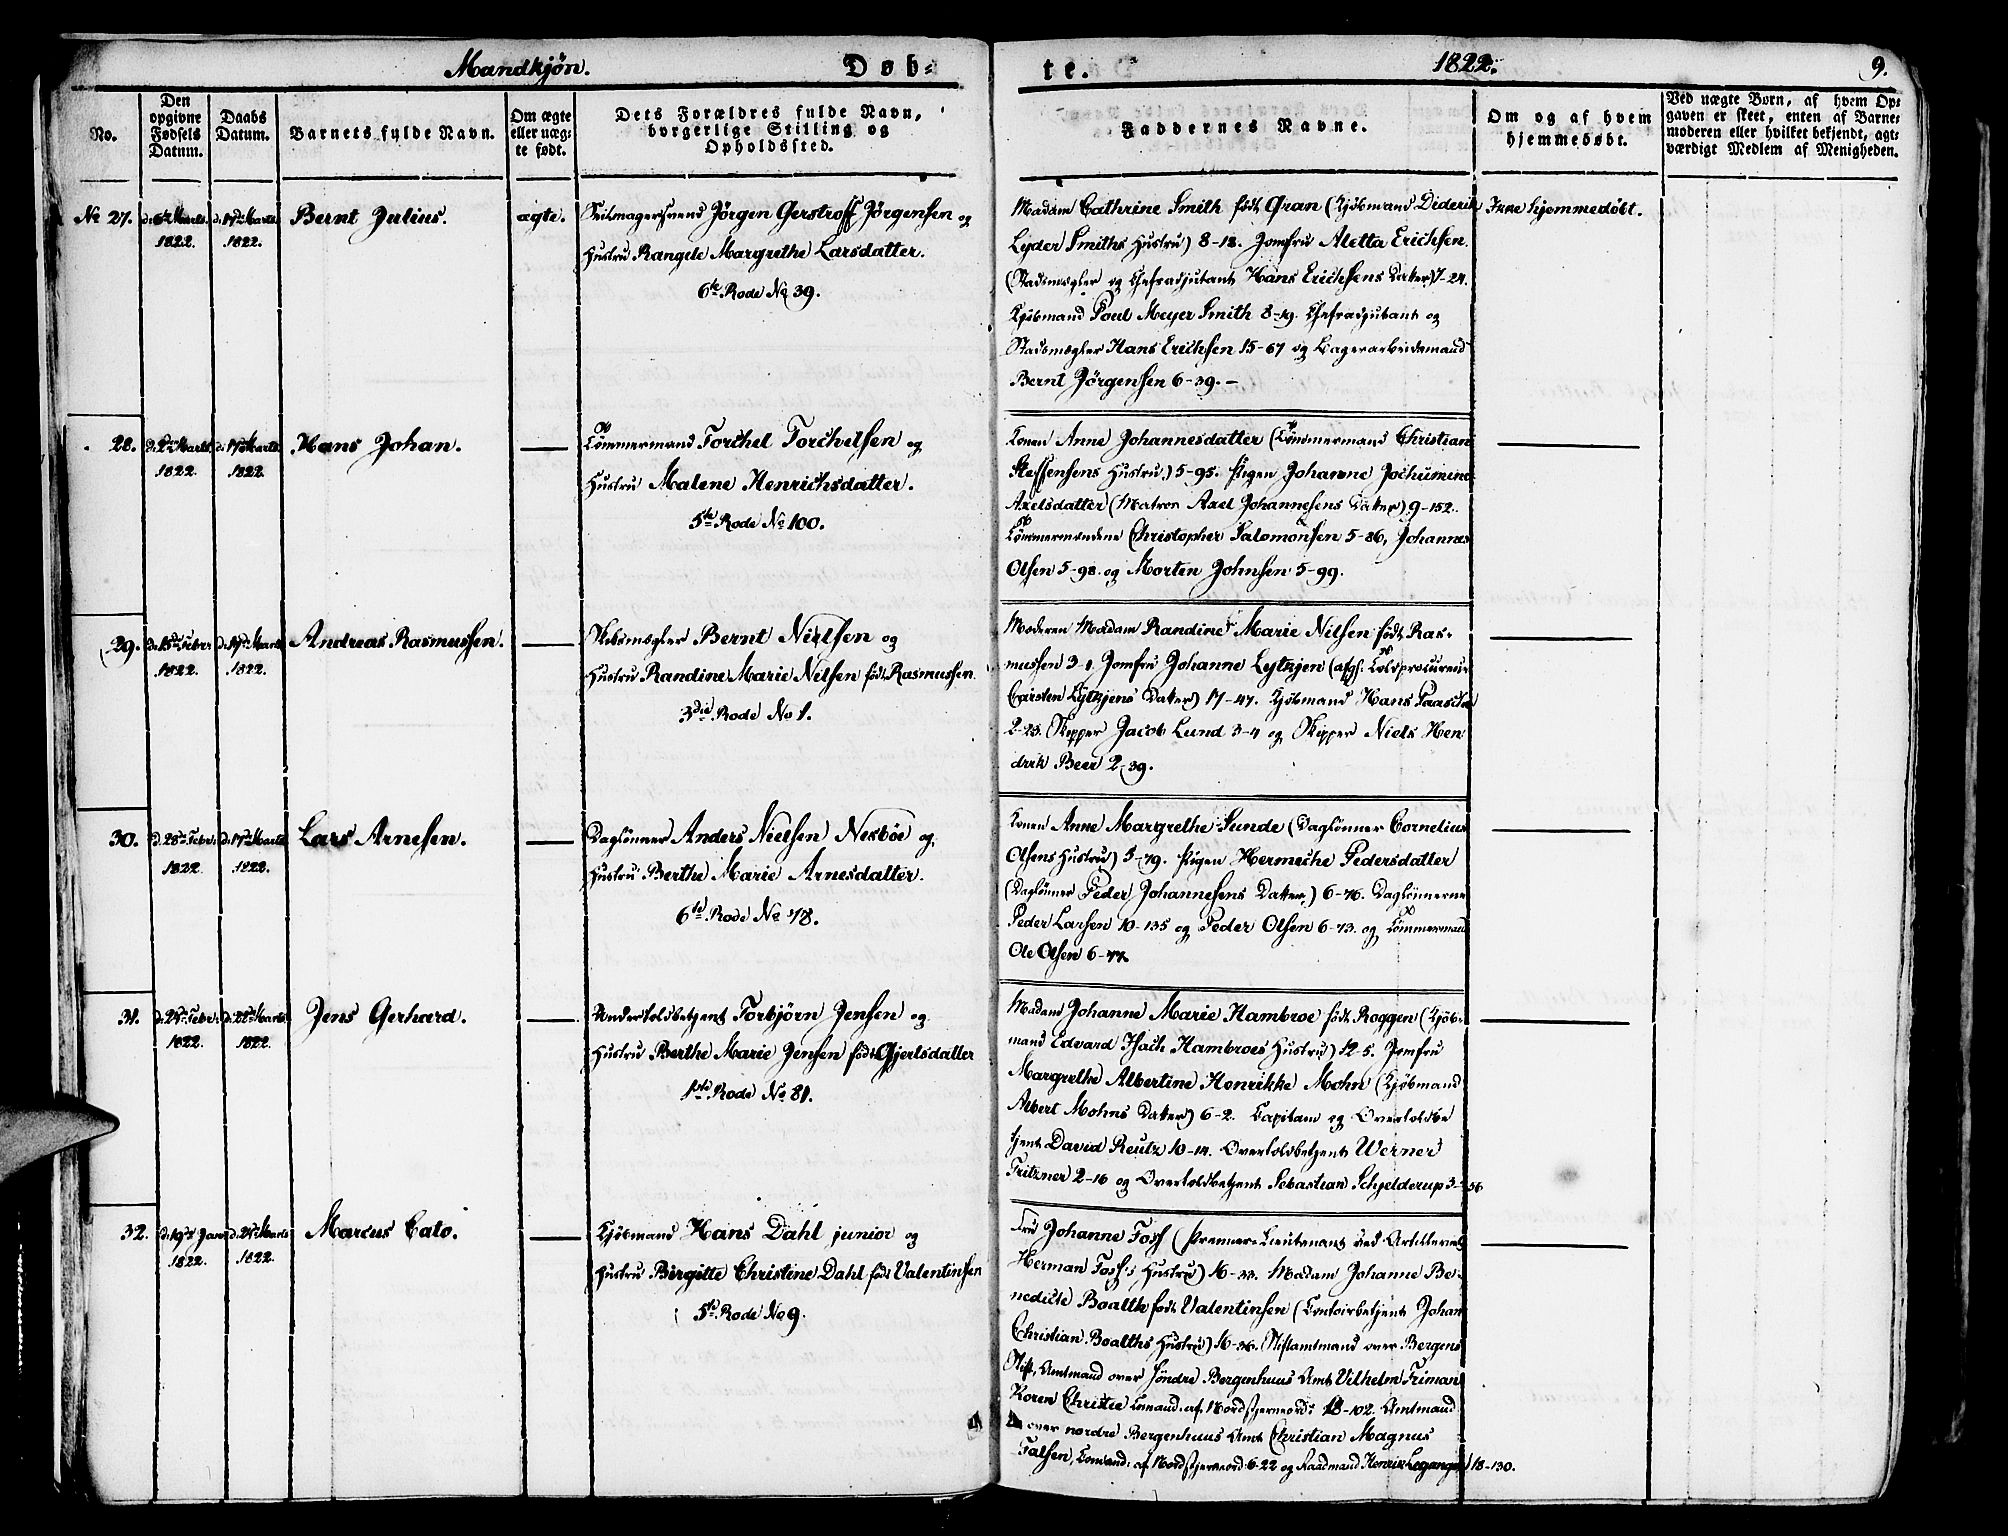 Mandkjøn.
Døb-
te.
1822.
9.
No.
Den opgivne Fødsels Datum.
Daabs Datum.
Barnets fulde Navn.
Om ægte eller uægte født.
Dets Forældres fulde Navn, borgerlige Stilling og Opholdssted.
Faddernes Navne.
Om og af hvem hjemmedøbt.
Ved uægte Børn, af hvem Op-
gaven er skeet, enten af Barne-
moderen eller hvilket bekjendt, agt-
værdigt Medlem af Menigheden.
No 27.
Marts 1822.
d. 17de Marts 1822.
Bernt Julius.
ægte.
Seilmagersvend Jörgen Gerstroff Jörgensen og
Hustru Rangele Margrethe Larsdatter.
6te Rode No 39.
Madam Cathrine Smith født Gran (Kjöbmand Diderik
Lyder Smiths Hustru) 8-18. Jomfru Aletta Erichsen
(Stadsmægler og Chefradjutant Hans Erichsens Datter) 7-24.
Kjöbmand Poul Meyer Smith 8-19. Chefradjutant og
Stadsmægler Hans Erichsen 15-67 og Lagerarbeidsmand
Bernt Jörgensen 6-39. -
Ikke hjemmedöbt.
28.
Marts 1822.
d. 17de Marts 1822.
Hans Johan.
Tömmermand Torchel Torchelsen og
Hustru Malene Henrichsdatter.
5te Rode No 100.
Konen Anne Johannesdatter (Tömmermand Christian
Steffensens Hustru) 5-95. Pigen Johanne Jochumine
Axelsdatter (Matros Axel Johannesens Datter) 9-152.
Tömmermændene Christopher Salomonsen 5-86, Johannes
Olsen 5-98. og Morten Johnsen 5-99.
29.
d. 15de Febr. 1822.
Marts 1822.
Andreas Rasmussen.
Skibsmægler Bernt Nielsen og
Hustru Randine Marie Nilsen født Rasmussen.
3die Rode No 1.
Moderen Madam Randine Marie Nilsen født Ras-
mussen 3-1. Jomfru Johanne Lytkjen (afgl. Toldprocureur
Carsten Lytkjens Datter) 17-47. Kjöbmand Hans Paasche
2-23. Skipper Jacob Lund 3-4 og Skipper Niels Hen
drik Beer 2-39.
30.
d. 28de Febr. 1822.
d. 17de Marts 1822.
Lars Arnesen.
Daglönner Anders Nielsen Nesböe og
Hustru Berthe Marie Arnesdatter.
6te Rode No 78.
Konen Anne Margrethe Sunde (Daglönner Cornelius
Olsens Hustru) 5-79. Pigen Hermeche Pedersdatter
(Daglönner Peder Johannesens Datter) 6-76. Daglönnerne
Peder Larsen 10-135 og Peder Olsen 6-73. og Tömmermand
Ole Olsen 6-77.
31.
Febr. 1822.
Marts 1822.
Jens Gerhard.
Undertoldbetjent Torbjörn Jensen og
Hustru Berthe Marie Jensen født Gjertsdatter
1ste Rode No 81.
Madam Johanne Marie Hambroe født Roggen (Kjöb-
mand Edvard Isach Hambroes Hustru) 12-5. Jomfru
Margrethe Albertine Henrikke Mohn (Kjöbmand
Albert Mohns Datter) 6-2. Capitain og Overtoldbe
tjent David Reutz 10-14. Overtoldbetjent Werner
Fritzner 2-16 og Overtoldbetjent Sebastian Schjelderup
32.
d. 19de Janr. 1822.
Marts 1822.
Marcus Cato.
Kjöbmand Hans Dahl junior og
Hustru Birgitte Christine Dahl født Valentinsen
5te Rode No 9.
Fru Johanne Foss (Premier-Lieutenant ved Artilleriet
Herman Foss's Hustru) 16-33. Madam Johanne Be-
nedicte Boalth født Valentinsen (Contoirbetjent Johan
Christian Boalths Hustru) 16-36. Stiftamtmand over Bergens
Stift, Amtmand over Söndre Bergenhuus Amt Vilhelm Friman
Koren Christie Comand. af Nordstjerneord: 18-102. Amtmand
over nordre Bergenhuus Amt Christian Magnus
Falsen, Comand: af Nordstjerneord: 6-22 og Raadmand Henrik Leganger 18-130.